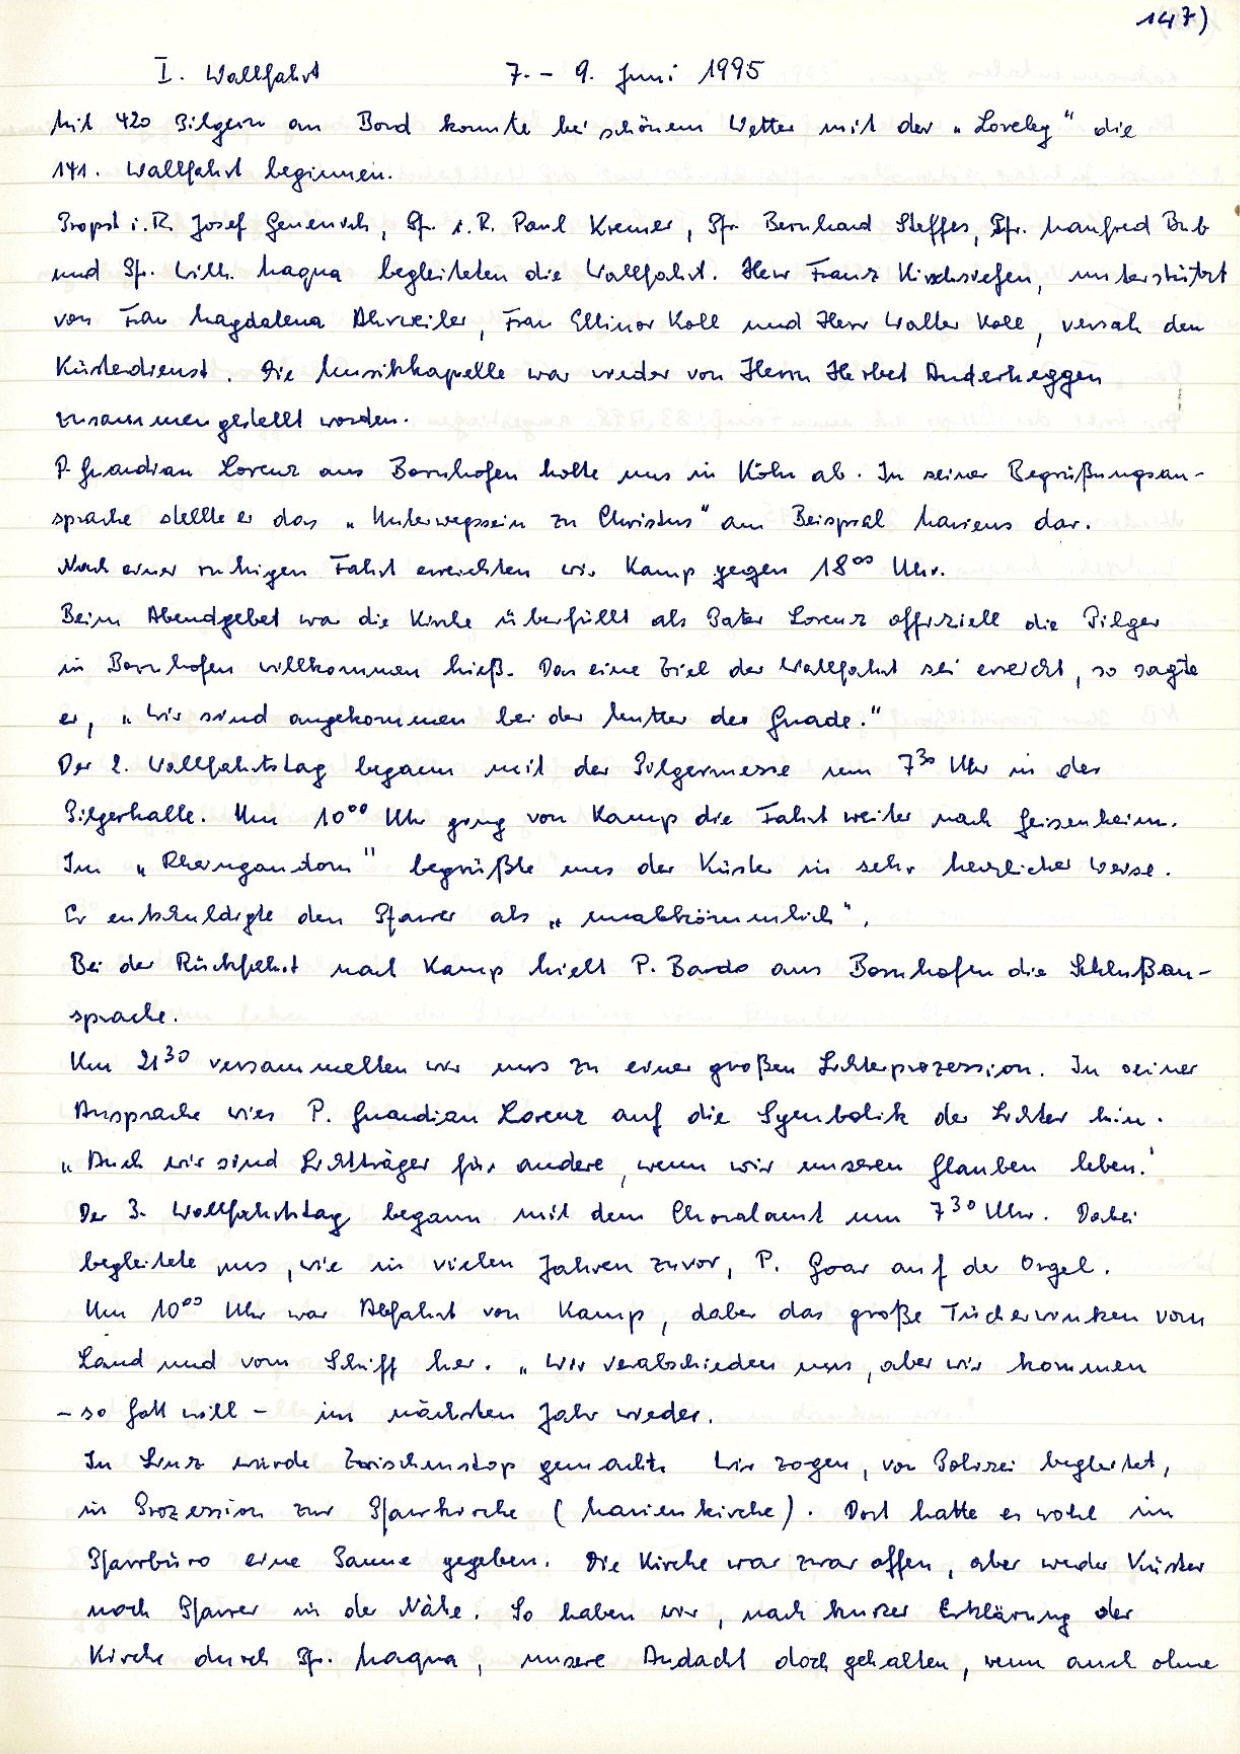 147)
I. Wallfahrt 7.- 9. Juni 1995
Mit 420 Pilgern an Bord konnte bei schönem Wetter mit der „Loreley" die
141. Wallfahrt beginnen.
Propst i.R. Josef Generich, Pfr. i.R. Paul Kremer, Pfr. Bernhard Steffes, Pfr. Manfred Bub
und Pfr. Wilh. Maqua begleiteten die Wallfahrt. Herr Franz Kirchsiefen, unterstützt
von Frau Magdalena Ahrweiler, Frau Ellinor Koll und Herr Walter Koll, versah den
Küsterdienst. Die Musikkapelle war wieder von Herrn Herbert Anderheggen
zusammengestellt worden.
P. Guardian Lorenz aus Bornhofen holte uns in Köln ab. In seiner Begrüßungsan-
sprache stellte er das „Unterwegssein zu Christus" am Beispial Mariens dar.
Nach einer ruhigen Fahrt erreichten wir Kamp gegen 18⁰⁰ Uhr.
Beim Abendgebet war die Kirche überfüllt als Pater Lorenz offiziell die Pilger
in Bornhofen willkommen hieß. Das eine Ziel der Wallfahrt sei erreicht, so sagte
er, „wir sind angekommen bei der Mutter der Gnade."
Der 2. Wallfahrtstag begann mit der Pilgermesse um 7³⁰ Uhr in der
Pilgerhalle. Um 10⁰⁰ Uhr ging von Kamp die Fahrt weiter nach Geisenheim.
Im „Rheingaudom" begrüßte uns der Küster in sehr herzlicher Weise.
Er entschuldigte den Pfarrer als „unabkömmlich".
Bei der Rückfahrt nach Kamp hielt P. Bardo aus Bornhofen die Schlußan-
sprache.
Um 21³⁰ versammelten wir uns zu einer großen Lichterprozession. In seiner
Ansprache wies P. Guardian Lorenz auf die Symbolik der Lichter hin.
„Auch wir sind Lichtträger für andere, wenn wir unseren Glauben leben."
Der 3. Wallfahrtstag begann mit dem Choralamt um 7³⁰ Uhr. Dabei
begleitete uns, wie in vielen Jahren zuvor, P. Goar auf der Orgel.
Um 10⁰⁰ Uhr war Abfahrt von Kamp, dabei das große Tücherwinken vom
Land und vom Schiff her. „Wir verabschieden uns, aber wir kommen
- so Gott will - im nächsten Jahr wieder.
In Linz wurde Zwischenstop gemacht. Wir zogen, von Polizei begleitet,
in Prozession zur Pfarrkirche (Marienkirche). Dort hatte es wohl im
Pfarrbüro eine Panne gegeben. Die Kirche war zwar offen, aber weder Küster
noch Pfarrer in der Nähe. So haben wir, nach kurzer Erklärung der
Kirche durch Pfr. Maqua, unsere Andacht doch gehalten, wenn auch ohne